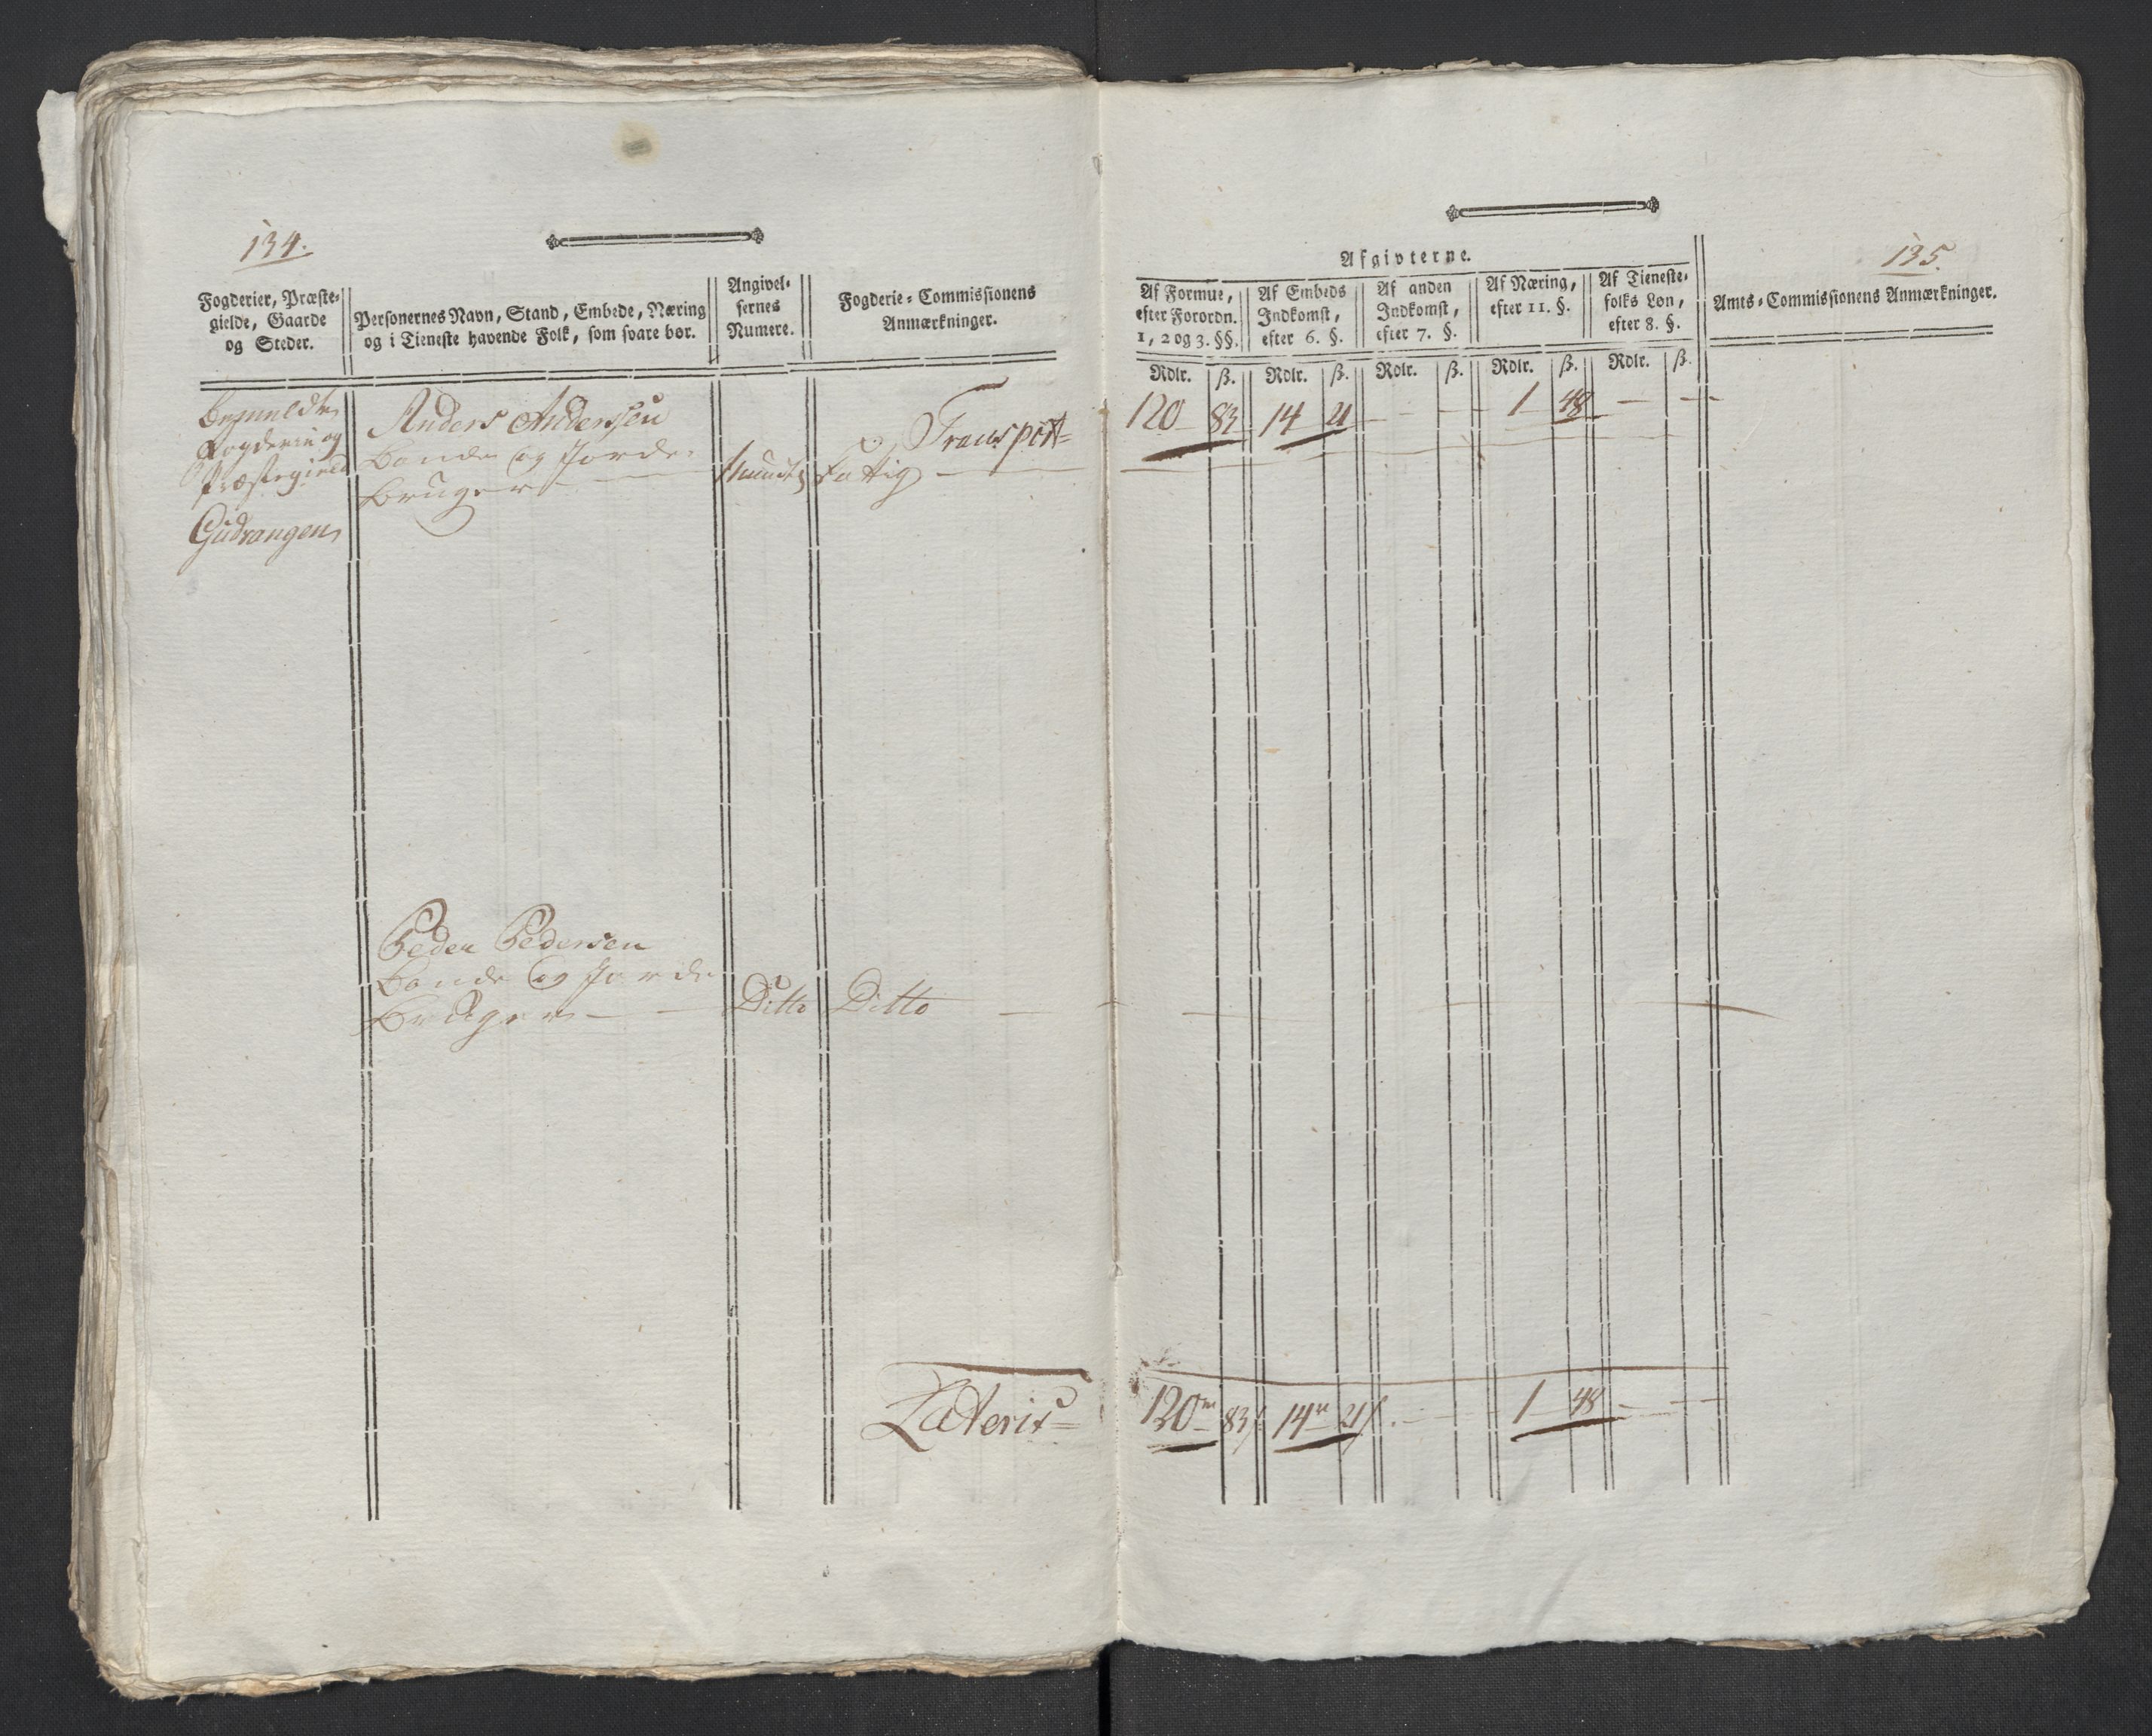 134.
Fogderier, Præste-
gielde, Gaarde
og Steder.
Personernes Navn, Stand, Embede, Næring
og i Tieneste havende Folk, som svare bør.
Angivel-
sernes
Numere.
Fogderie-Commissionens
Anmærkninger.
Bemeldte
Fogderie og
Præstegield
Gudvangen
Anders Anderssen
Bonde og Jorde-
bruger
Transport
Mundtl
fattig
Peder Pedersen
Bonde og Jorde
bruger
Ditto
Ditto
Lateris
135.
Afgivterne.
Af Formue,
efter Forordn.
1, 2 og 3. §§.
Af Embeds
Indkomst,
efter 6. §.
Af anden
Indkomst,
efter 7. §.
Af Næring,
efter 11. §.
Af Tieneste-
folks Løn,
efter 8. §.
Amts-Commissionens Anmærkninger.
Rdlr. ß. Rdlr. ß. Rdlr. ß. Rdlr. ß. Rdlr. ß.
120 83 14 21 - - 1 48 - -
120 83 14 21 - - 1 48 - -